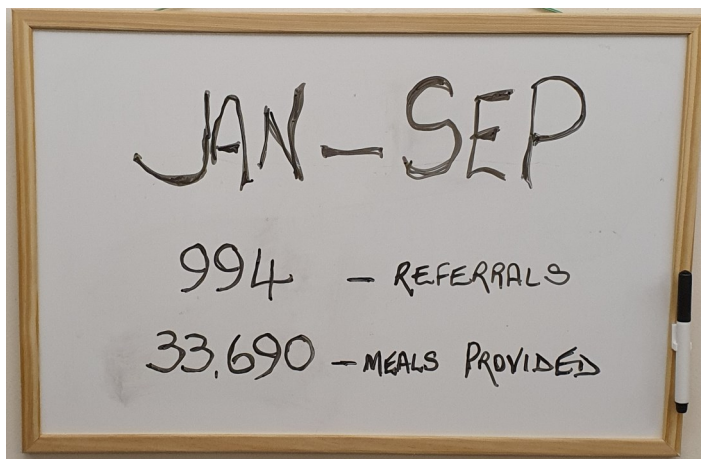 JAN - SEP
994 - REFERRALS
33,690 - MEALS PROVIDED